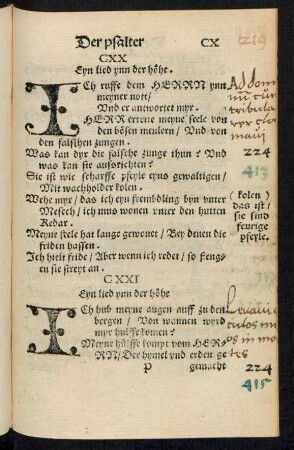 Der psalter CX
219
CXX
Eyn lied ynn der höhe.
ICh ruffe dem HERRN ynn
meyner nott/
Vnd er antwortet myr.
HERR errette meyne seele von
den bösen meulern/ Vnd von
den falschen zungen.
Was kan dyr die falsche zunge thun? Vnd
was kan sie ausrichten?
Sie ist wie scharffe pfeyle eyns gewaltigen/
Mit wachholder kolen.
Wehe myr/ das ich eyn frembdling byn vnter
Mesech/ ich mus wonen vnter den hutten
Kedar.
Meyne seele hat lange gewonet/ Bey denen die
friden hassen.
Ich hielt fride/ Aber wenn ich redet/ so fien-
gen sie streyt an.
Ad dom
num cum
tribula
rer cla
maui
224
413
(kolen)
das ist/
sie sind
feurige
pfeyle.
CXXI
Eyn lied ynn der höhe
ICh hub meyne augen auff zu den
bergen/ Von wannen wyrd
myr hulffe komen?
Meyne hülffe kompt vom HER-
RN/ Der hymel vnd erden ge
P gemacht
Leuaui
culos me
os in mo
tes
224
415